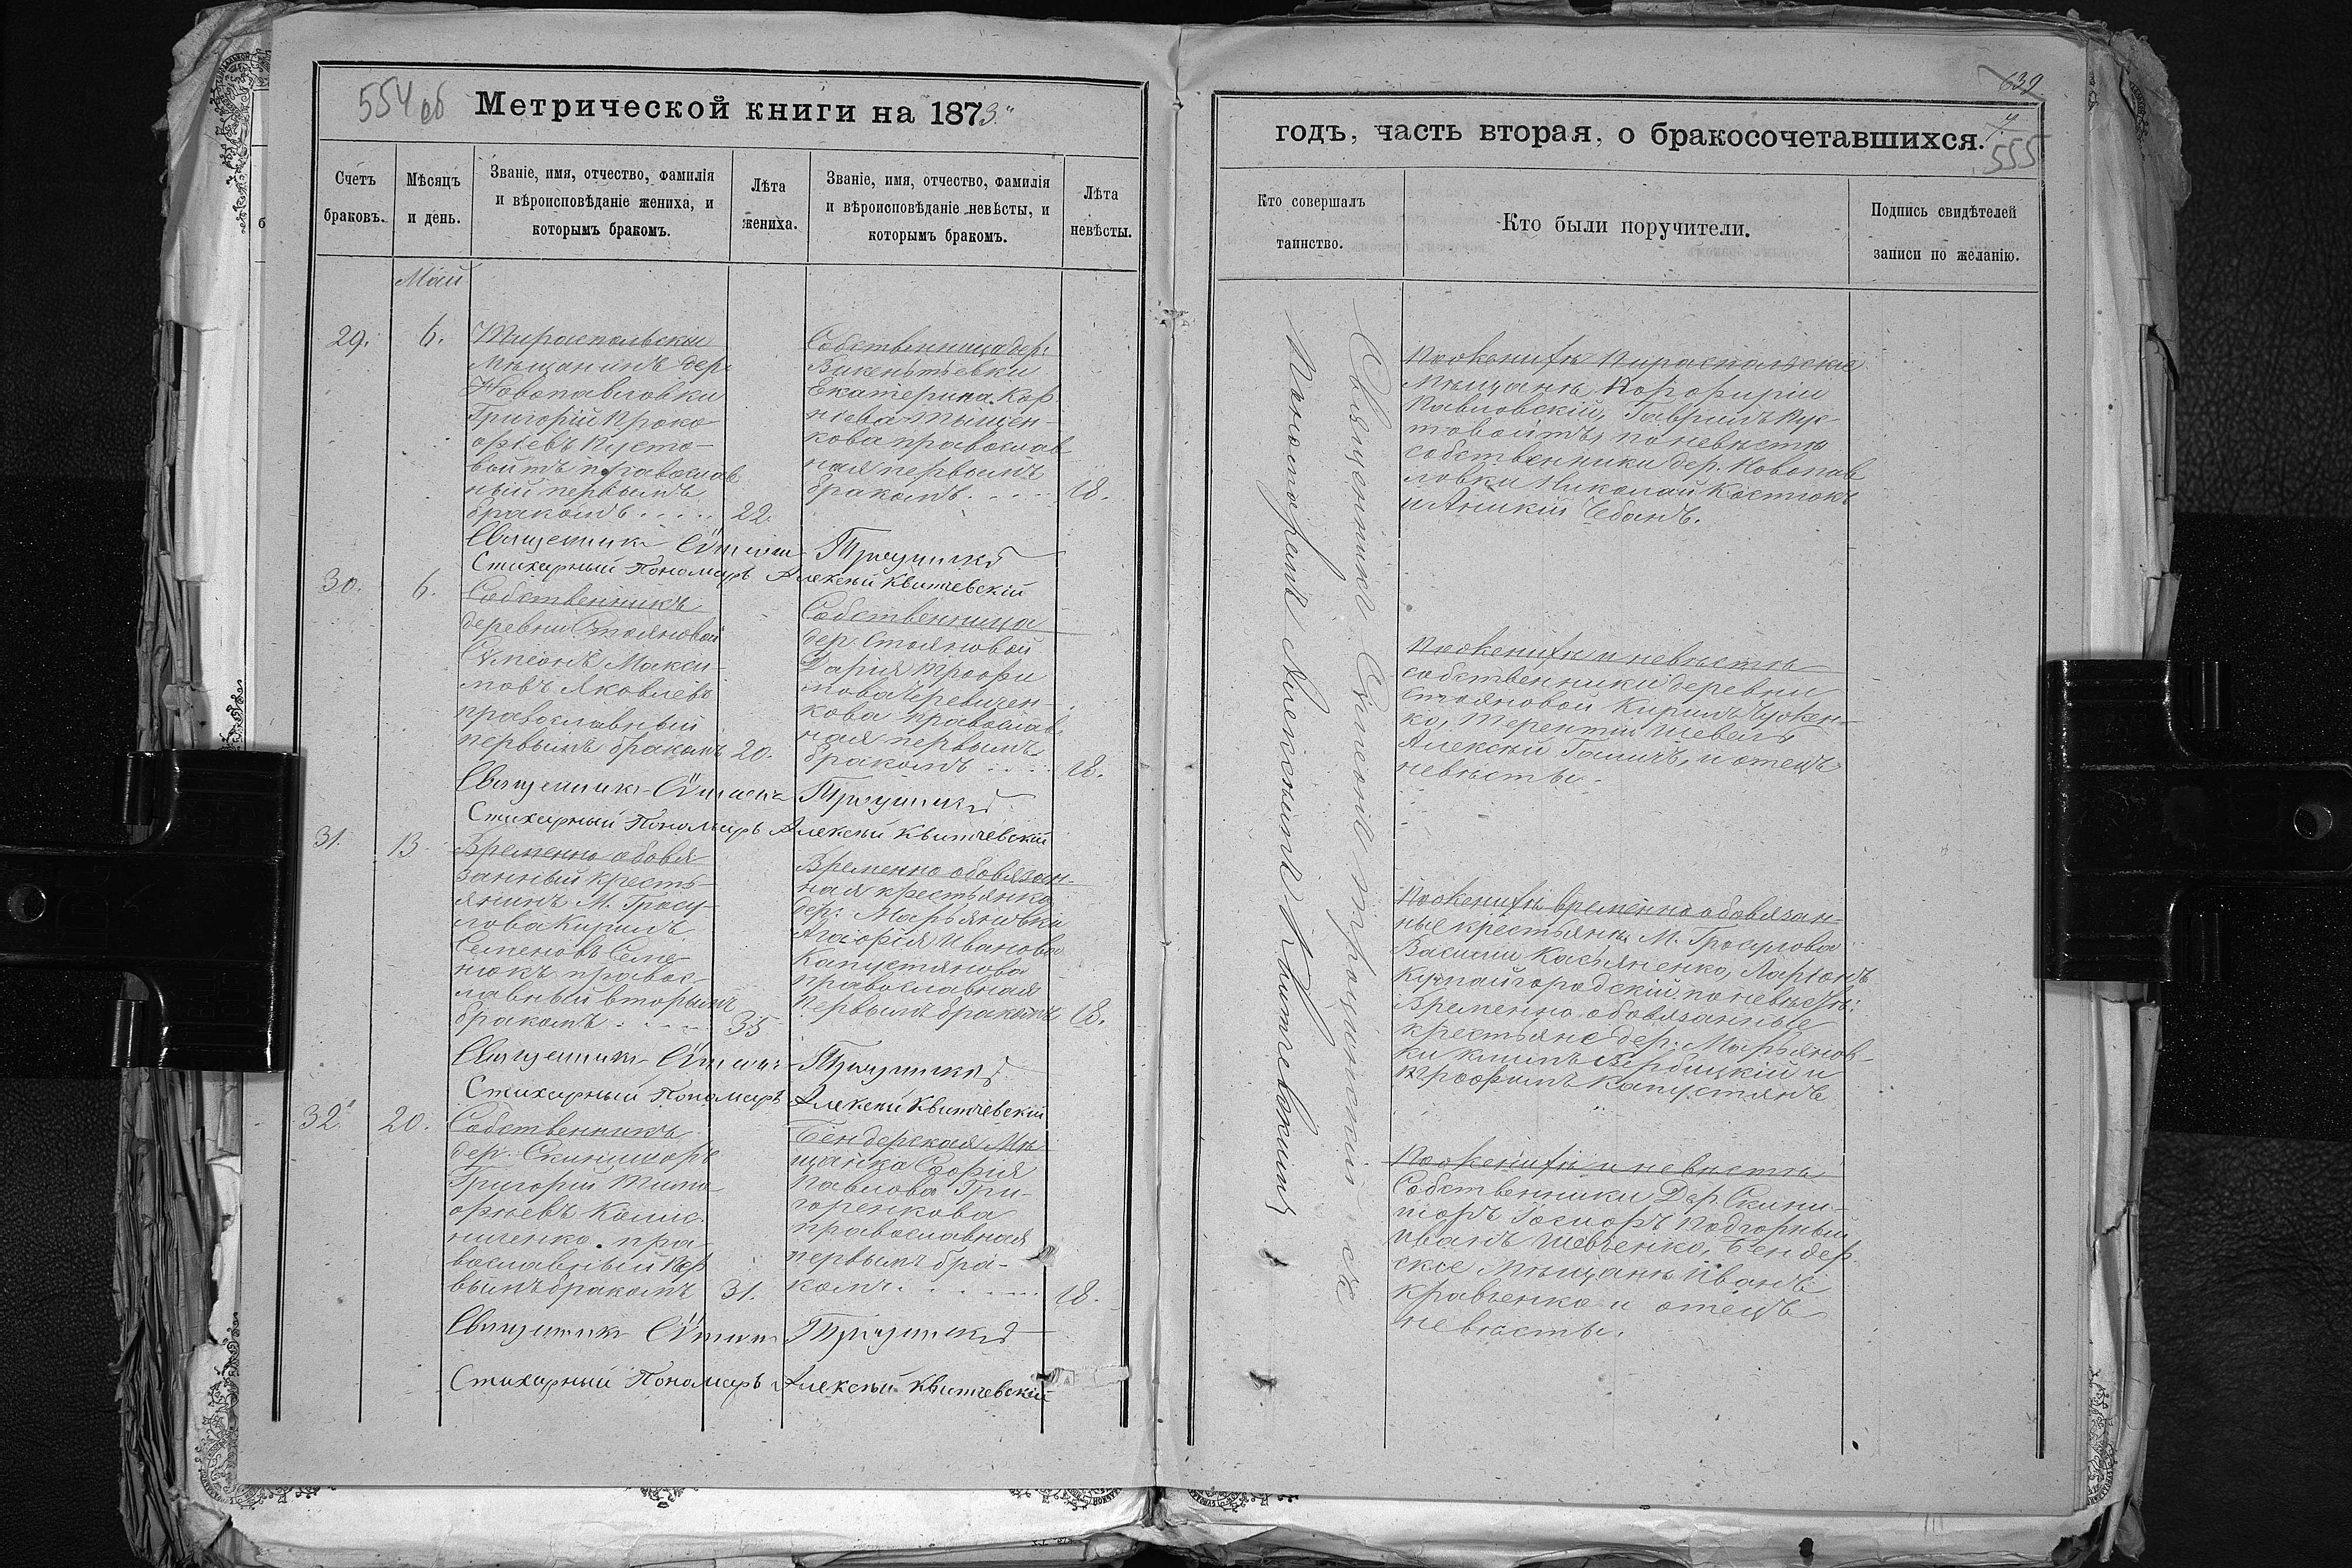 554 об
Метрической книги на 1873.
Счетъ
браковъ.
Мѣсяцъ
и день.
Званіе, имя, отчество, фамилія
и вѣроисповѣданіе жениха, и
которымъ бракомъ.
Лѣта
жениха.
Званіе, имя, отчество, фамилія
и вѣроисповѣданіе невѣсты, и
которымъ бракомъ.
Лѣта
невѣсты.
Май
29.
6.
Тираспольскій
Мѣщанинъ дер.
Новопавловки
Григорій Проко
фіевъ Пусто-
войтъ православ
ный первымъ
бракомъ
22.
Собственница дер:
Викентьевки
Екатерина Кор
нѣева Тыщен-
кова православ
ная первымъ
бракомъ
18.
Священникъ Сѵмеонъ
Стихарный Пономарь Алексѣй Квитчевскій
30.
6.
Собственникъ
деревни Стояновой
Сѵмеонъ Макси-
мовъ Яковлевъ
православный
первымъ бракомъ
20.
Собственница
дер. Стояновой
Дарія Трофи
мова
кова православ
ная первымъ
бракомъ
18.
Священникъ Сѵмеонъ
Стихарный Пономарь Алексѣй Квитчевскій
31.
13.
Временно обовя
занный кресть-
янинъ М. Гросу-
лова Кирилъ
Семеновъ Семе-
нюкъ правос-
лавный вторымъ
бракомъ
35
Временно обовязан-
ная крестьянка
дер: Марьяновки
Агафія Иванова
Капустянова
православная
первымъ бракомъ
18.
Священникъ Сѵмеонъ
Стихарный Пономарь Алексѣй Квитчевскій
32.
20.
Собственникъ
дер. Скинишоръ
Григорій Тимо
фѣевъ Колис
ниченко пра-
вославный пер
вымъ бракомъ
31.
Бендерская Мѣ
щанка Софія
Павлова Гри-
горенкова
православная
первымъ бра-
комъ
18.
Священникъ Сѵмеонъ
Стихарный Пономарь Алексѣй Квитчевскій
639
555
годъ, часть вторая, о бракосочетавшихся.
Кто совершалъ
таинство.
Кто были поручители.
Подпись свидѣтелей
записи по желанію.
Священникъ Сѵмеонъ съ
Пономаремъ Алексѣемъ Квитчевскимъ
По женихѣ Тираспольскіе
Мѣщане Порфирій
Павловскій, Гаврилъ Пус
товойтъ, по невѣстѣ
собственники дер. Новопав
ловки Николай Костюкъ
и Аникій Чебанъ.
По женихѣ и невѣстѣ
собственники деревни
Стояновой Кирилъ
ко, Терентій Шевель
Алексѣй и отецъ
невѣсты.
По женихѣ временно обовязан-
ные крестьяне М. Гросулова
Василій Касьяненко, Ларіонъ
Купайгородскій по невѣстѣ:
Временно обовязанные
крестьяне дер: Марьянов-
ки Климъ Вербицкій и
Трофимъ Капустянъ
По женихѣ и невѣстѣ
Собственники Дер. Скини-
шоръ Подгорный
Иванъ Шевченко, Бендер
скіе Мѣщане Иванъ
Кравченко и отецъ
невѣсты.